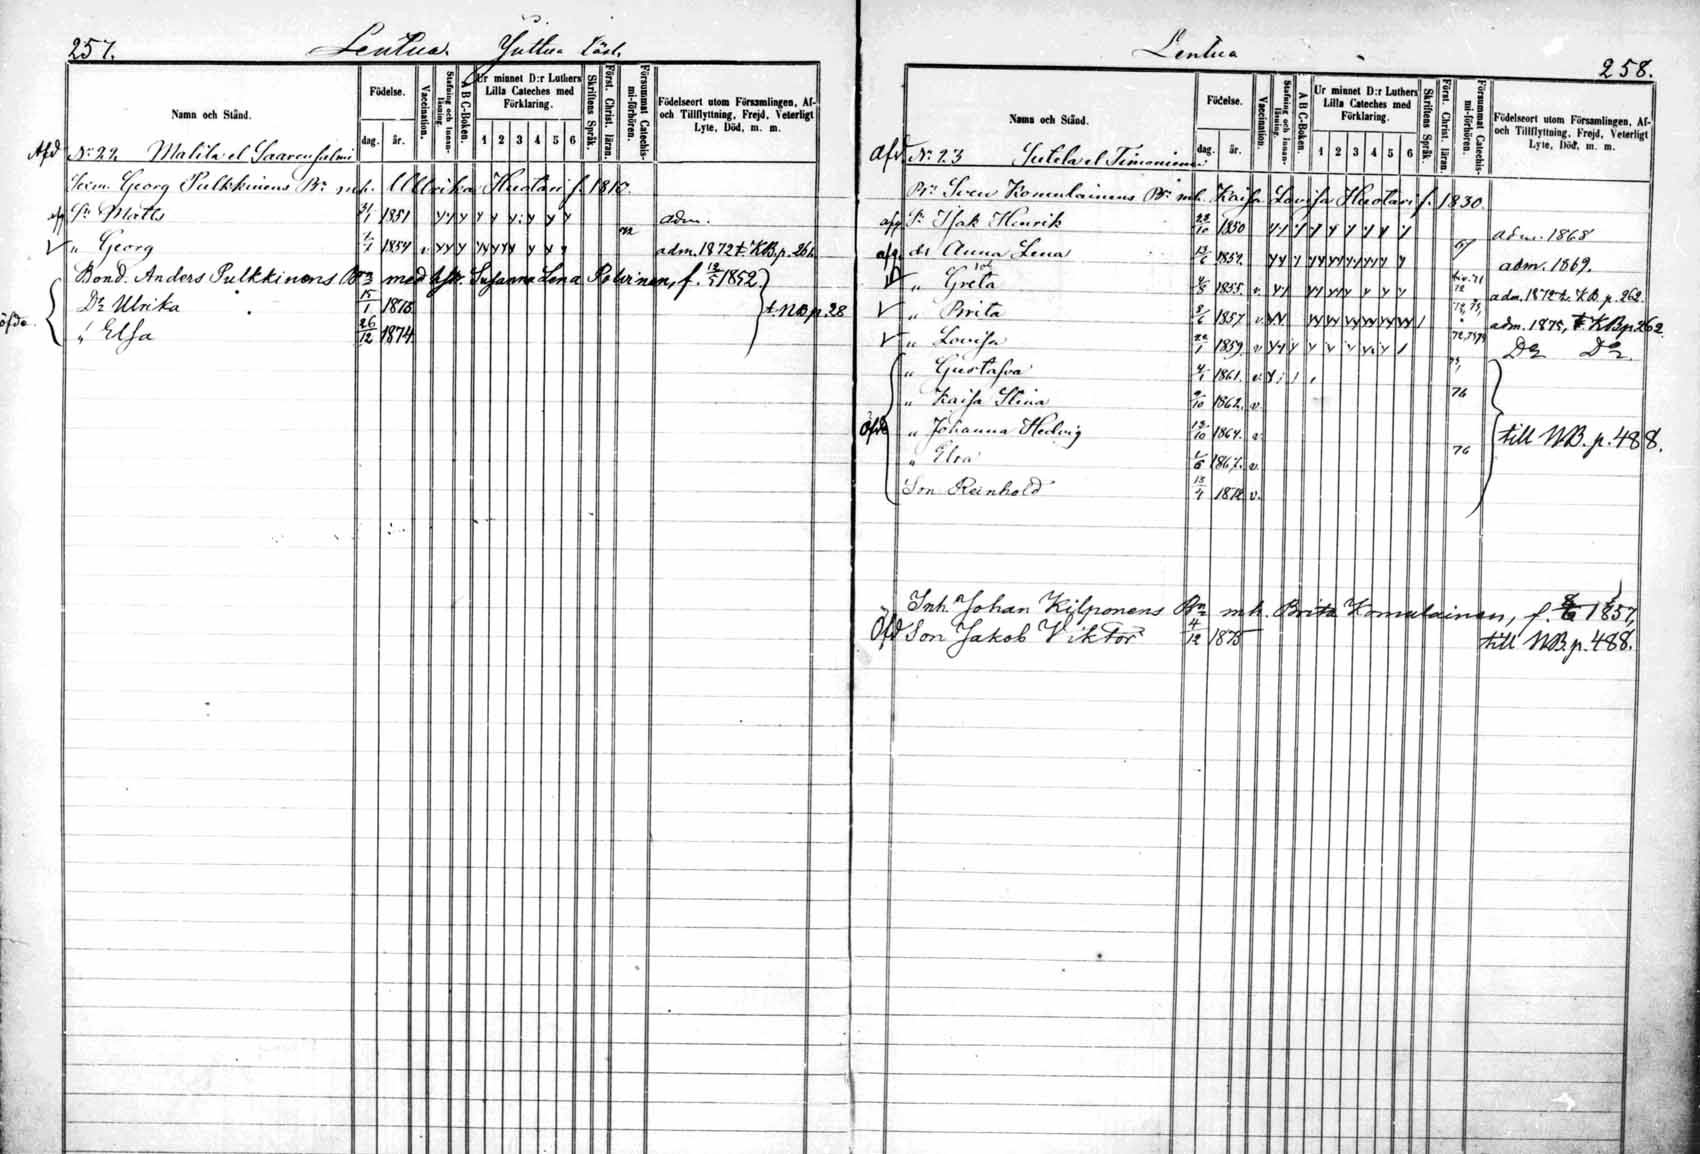 257. Lentua.
Namn och Stånd.
Födelse.
dag. år.
Vaccination.
Stafning och Innan-läsning.
A B C-Boken.
Ur minnet D:r Luthers Lilla Cateches med Förklaring.
1 2 3 4 5 6
Skriftens Språk.
Först. Christ. läran.
Försummat Catechis-mi-förhören.
Födelseort utom Församlingen, Af-och Tillflyttning, Frejd, Veterligt Lyte, Död, m. m.
Afd No 22. Malila el Saarensalmi
Georg Pulkkinens Bn mh. Ulrika Huotari f. 1810.
Sn Matts 31/1 1851 adm.
v " Georg 1/1 1854 v adm. 1872 t. KB. p. 261.
Bond. Anders Pulkkinens Bn med Hstr. Susanna Lena Polvinen, f. 12/5 1852.
Dr Ulrika 15/1 1873 t. NB p. 28
" Elsa 26/12 1874
Lentua 258.
Namn och Stånd.
Födelse.
dag. år.
Vaccination.
Stafning och Innan-läsning.
A B C-Boken.
Ur minnet D:r Luthers Lilla Cateches med Förklaring.
1 2 3 4 5 6
Skriftens Språk.
Först. Christ. läran.
Försummat Catechis-mi-förhören.
Födelseort utom Församlingen, Af-och Tillflyttning, Frejd, Veterligt Lyte, Död, m. m.
Afd No 23 Sutela el Timoniemi
Sven Komulainens Bn mh. Kaisa Lovisa Huotari f. 1830.
Sn Isak Henrik 1850 adm. 1868
dr Anna Lena 1852. 67 adm. 1869.
v " Greta 1855. v. adm. 1872 t. KB p. 262.
v " Brita 8/6 1857 v. adm. 1875, t. KB p. 262
v " Lovisa 22/1 1859. v Do Do
" Gustafva 4/1 1861. v.
" Kaisa Stina 9/10 1862. v. 76
Öfd " Johanna Hedvig 13/10 1864. v. till NB. p. 488.
" Elsa 1/5 1867. v. 76
Son Reinhold 13/4 1872 v.
Inh. Johan Kilponens Bn mh. Brita Komulainen, f. 8/6 1857,
Öfd Son Jakob Viktor 4/12 1875 till NB. p. 488.